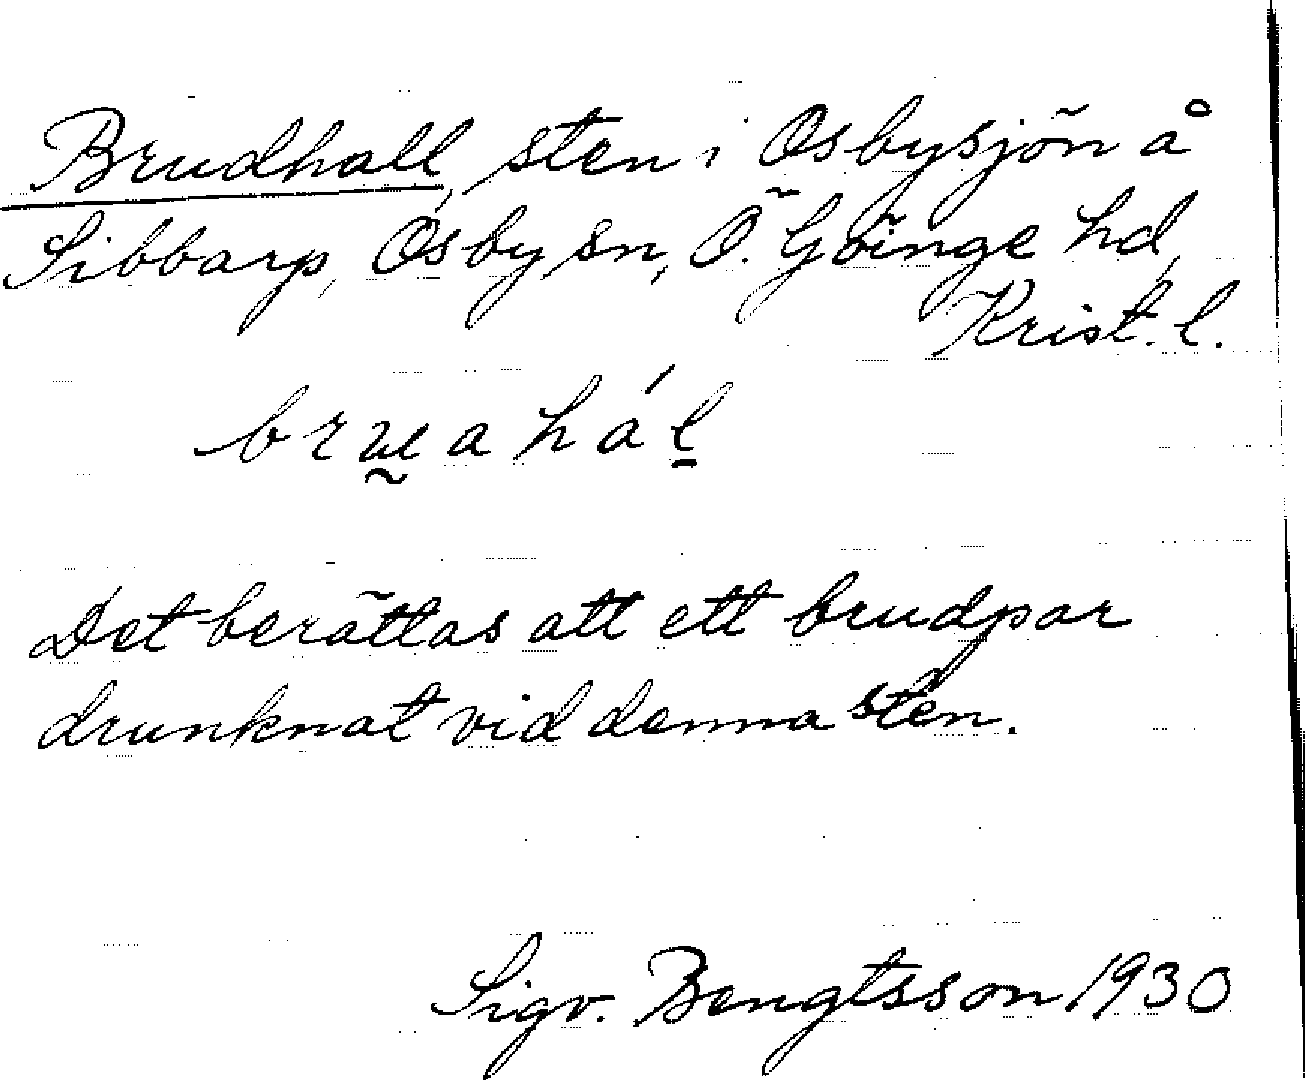 Brudhall, sten i Osbysjön å
Sibbarp, Osby sn, Ö. Göinge hd,
Krist. l.
Det berättas att ett brudpar
drunknat vid denna sten.
Sigv. Bengtsson 1930